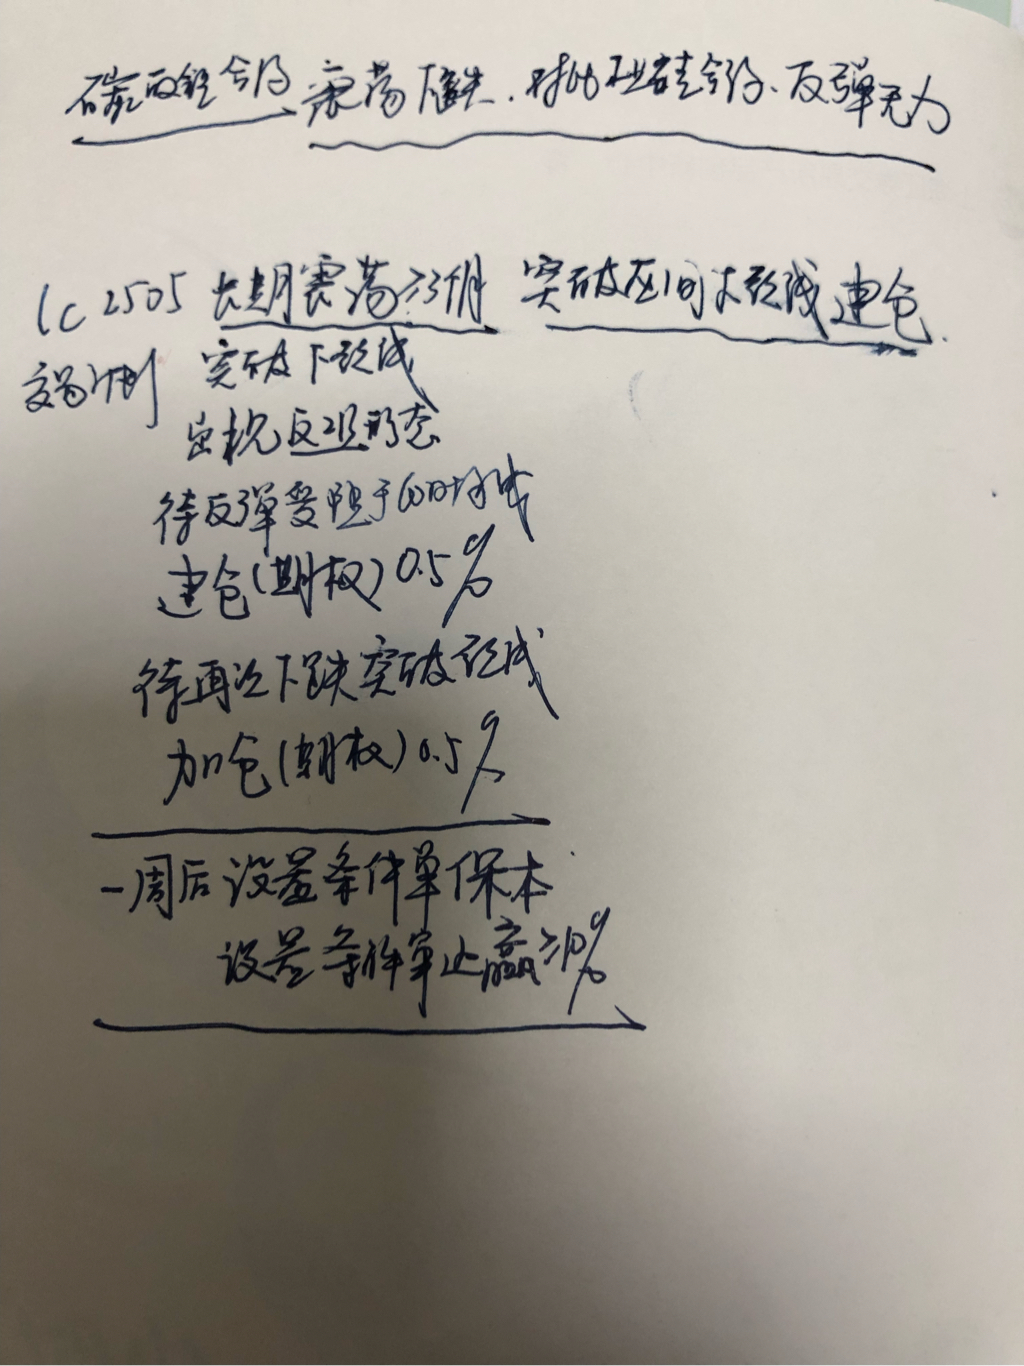 碳酸锂合约震荡下跌.对比工业硅合约.反弹无力
lc2505 长期震荡≥3个月 突破区间大颈线建仓.
交易计划 突破下颈线
出现反现形态
待反弹受阻于60日均线
建仓(期权)0.5%
待再次下跌突破颈线
加仓(期权)0.5%
一周后设置条件单保本
设置条件单止赢≥10%